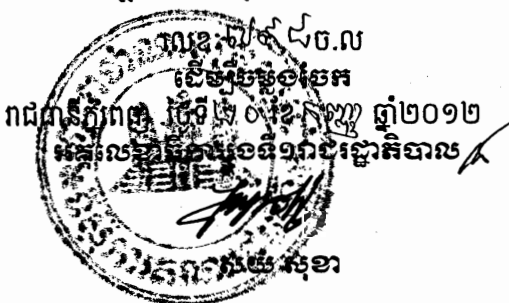 លេខ: ៧៩៨ ច.ល
ដើម្បីចម្លងចែក
រាជធានីភ្នំពេញ ថ្ងៃទី ២០ ខែ កញ្ញា ឆ្នាំ២០១២
អគ្គលេខាធិការរងទី១រាជរដ្ឋាភិបាល
សុខា